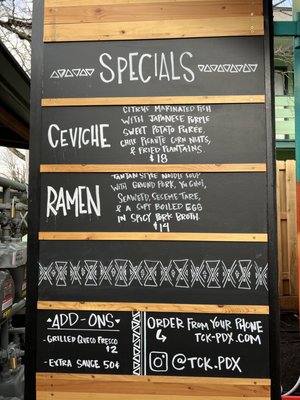 SPECIALS
CEVICHE
CITRUS MARINATED FISH
WITH JAPANESE PURPLE
SWEET POTATO PUREE,
CHILE PICANTE CORN NUTS,
& FRIED PLANTAINS.
$18
RAMEN
TANTAN STYLE NOODLE SOUP
WITH GROUND PORK, YU CHOI,
SEAWEED, SESEME TARE,
& A SOFT BOILED EGG
IN SPICY PORK BROTH.
$14
ADD-ONS
-GRILLED QUECO FRESCO
$2
-EXTRA SAUCE 50¢
ORDER FROM YOUR PHONE
TCK-PDX.COM
@TCK.PDX